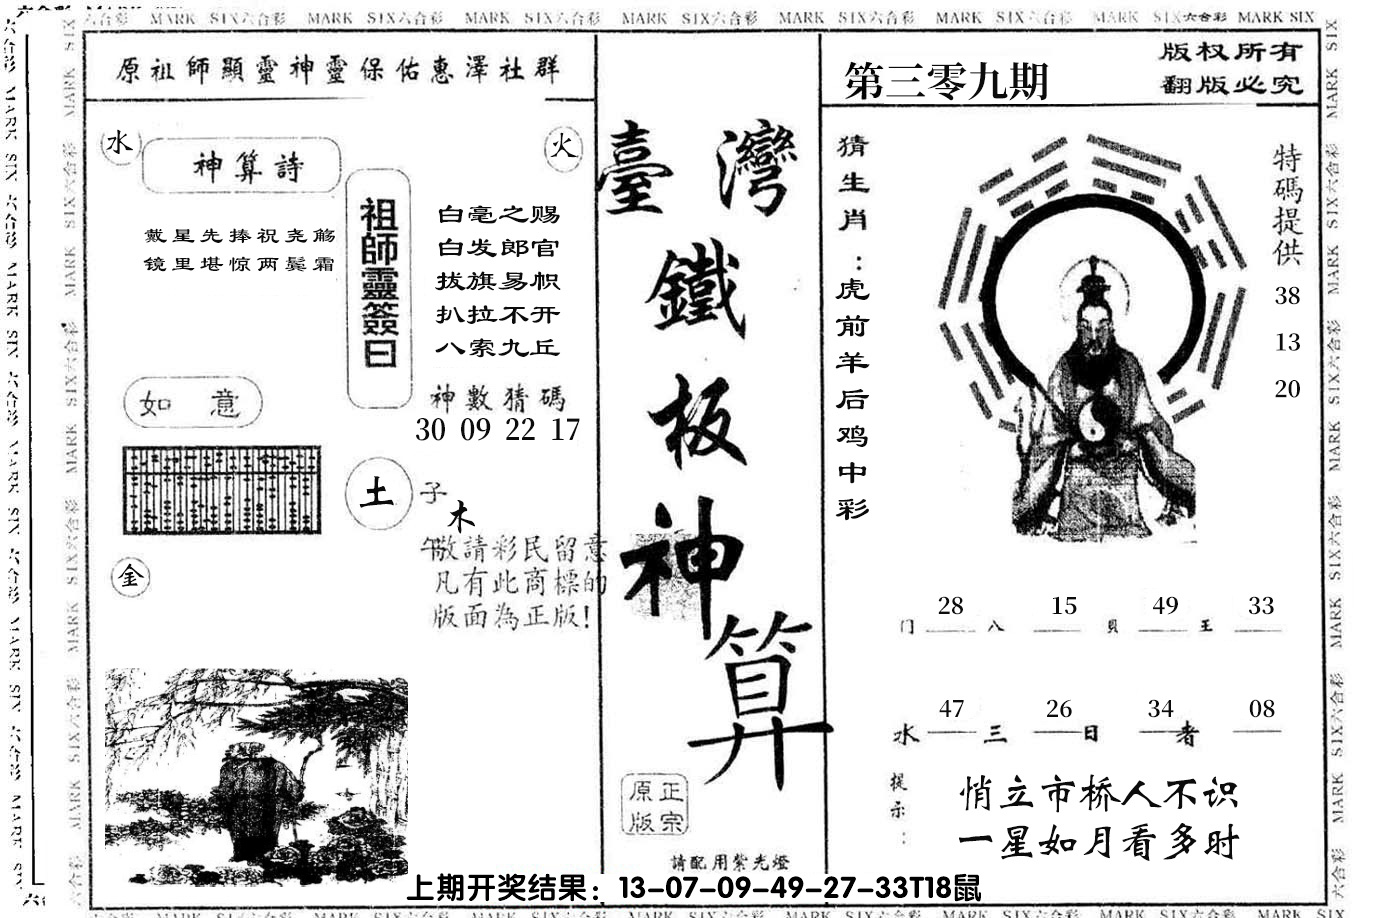 六合彩 MARK SIX六合彩 MARK SIX六合彩 MARK SIX六合彩 MARK SIX六合彩 MARK SIX六合彩 MARK SIX六合彩 MARK SIX六合彩 MARK SIX
原祖師顯靈神靈保佑惠澤社群
水
神算詩
火
戴星先捧祝尧觞
镜里堪惊两鬓霜
祖師靈簽曰
白毫之赐
白发郎官
拔旗易帜
扒拉不开
八索九丘
神數猜碼
30 09 22 17
如 意
土
子
木
午
敬請彩民留意
凡有此商標的
版面為正版!
金
臺灣
鐵
板
神
算
正宗
原版
請配用紫光燈
第三零九期
版权所有
翻版必究
猜生肖:虎前羊后鸡中彩
特碼提供
38
13
20
28 15 49 33
门 八 貝 王
47 26 34 08
水 三 日 者
提示:
悄立市桥人不识
一星如月看多时
上期开奖结果：13-07-09-49-27-33T18鼠